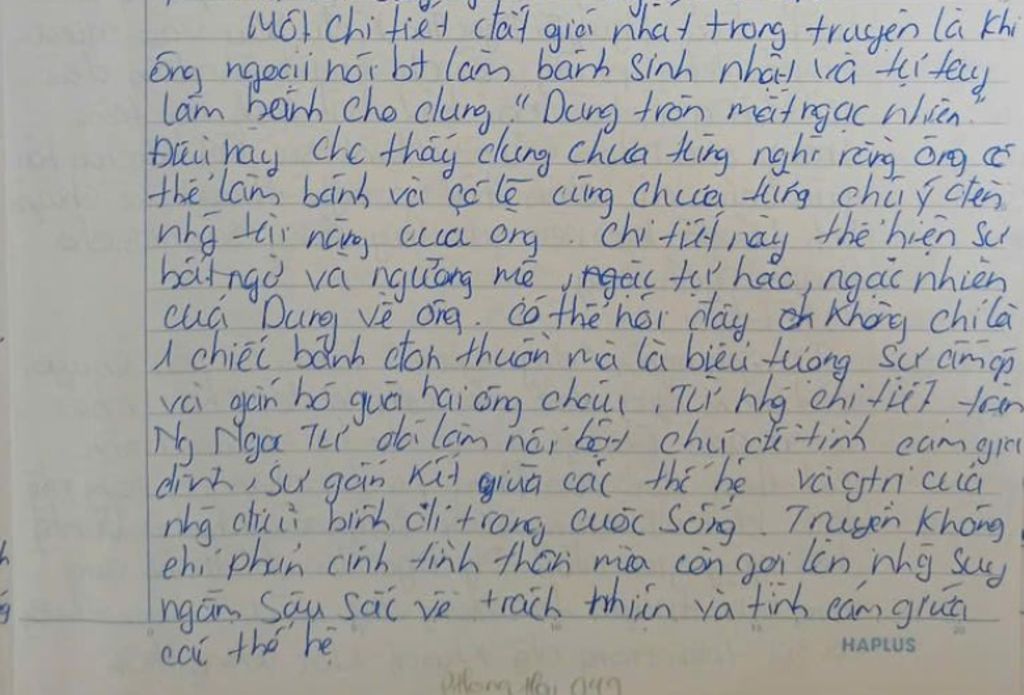 Một chi tiết đắt giá nhất trong truyện là khi
ông ngoại nói bt làm bánh sinh nhật và tự tay
làm bánh cho dung. "Dung tròn mắt ngạc nhiên"
Điều này cho thấy dung chưa từng nghĩ rằng ông có
thể làm bánh và có lẽ cũng chưa từng chú ý đến
nhg tài năng của ông. Chi tiết này thể hiện sự
bất ngờ và ngưỡng mộ, tự hào, ngạc nhiên
của Dung về ông. Có thể nói đây không chỉ là
1 chiếc bánh đơn thuần mà là biểu tượng sự ấm áp
và gắn bó giữa hai ông cháu. Từ nhg chi tiết trên
Ng Ngọc Tư đã làm nổi bật chủ đề tình cảm gia
đình, sự gắn kết giữa các thế hệ và gtri của
nhg điều bình dị trong cuộc sống. Truyện không
chỉ phản ánh tình thân mà còn gợi lên nhg suy
ngẫm sâu sắc về trách nhiệm và tình cảm giữa
các thế hệ
HAPLUS